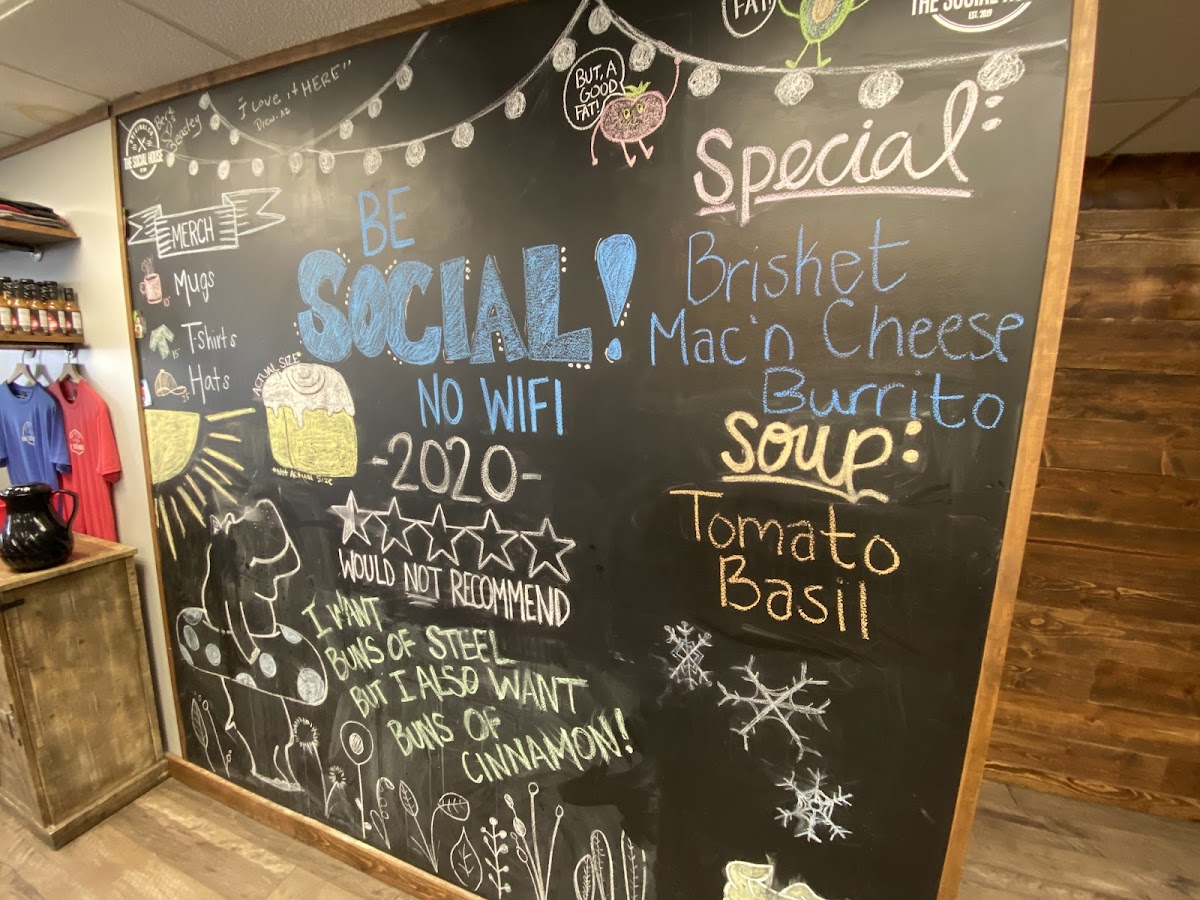 FAT!
THE SOCIAL HOUSE
EST. 2019
"I Love it HERE"
BUT, A
GOOD
FAT!
THE SOCIAL HOUSE
Special:
MERCH
BE
SOCIAL!
NO WIFI
Mugs
T-shirts
15
Hats
15
Brisket
Mac'n Cheese
Burrito
ACTUAL SIZE*
*Not Actual Size
-2020-
WOULD NOT RECOMMEND
Soup:
Tomato
Basil
I WANT
BUNS OF STEEL
BUT I ALSO WANT
BUNS OF
CINNAMON!